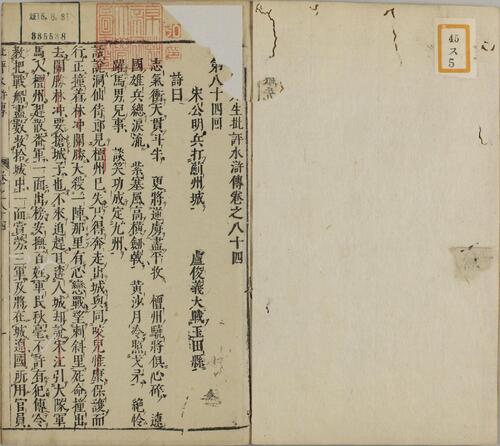 45
ス
5
生批評水滸傳卷之八十四
第八十四回
宋公明兵打薊州城
盧俊義大戰玉田縣
詩曰
志氣衝天貫斗牛
更將逆虜盡平收
檀州驍將俱心碎
遼
國雄兵總淚流
紫塞風高橫劍戟
黃沙月冷照戈矛
絕怜
躍馬男兒事
談笑功成定九州
話說洞仙侍郎見檀州已失只得奔走出城與同咬兒惟康保護而
行正撞着林冲關勝大殺一陣那里有心戀戰望刺斜里死命撞出
去關勝林冲要搶城子也不來追趕且遶入城却說宋江引大隊軍
馬入檀州趕散番軍一面出榜安撫百姓軍民秋毫不許有犯傳令
教把戰船盡數收拾城中一面賞勞三軍及將在城遼國所用官員